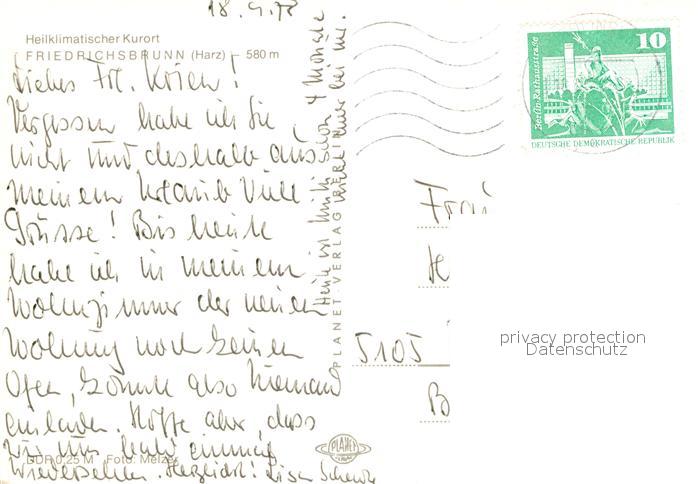 18.9.78
Heilklimatischer Kurort
FRIEDRICHSBRUNN (Harz) – 580 m
Liebes Frl.
Vergessen habe ich Sie
nicht und deshalb aus
meinem Urlaub viele
Grüsse! Bis heute
habe ich in meinem
Wohnzimmer der neuen
Wohnung noch keinen
Ofen, konnte also niemand
einladen. Hoffe aber, dass
wir uns bald einmal
wiedersehen. Herzlichst!
DDR 0,25 M Foto: Melzer
PLANET-VERLAG BERLIN
schon 4 Monate
PLANET
Berlin-Rathausstraße
10
DEUTSCHE DEMOKRATISCHE REPUBLIK
H
5105
B
privacy protection
Datenschutz